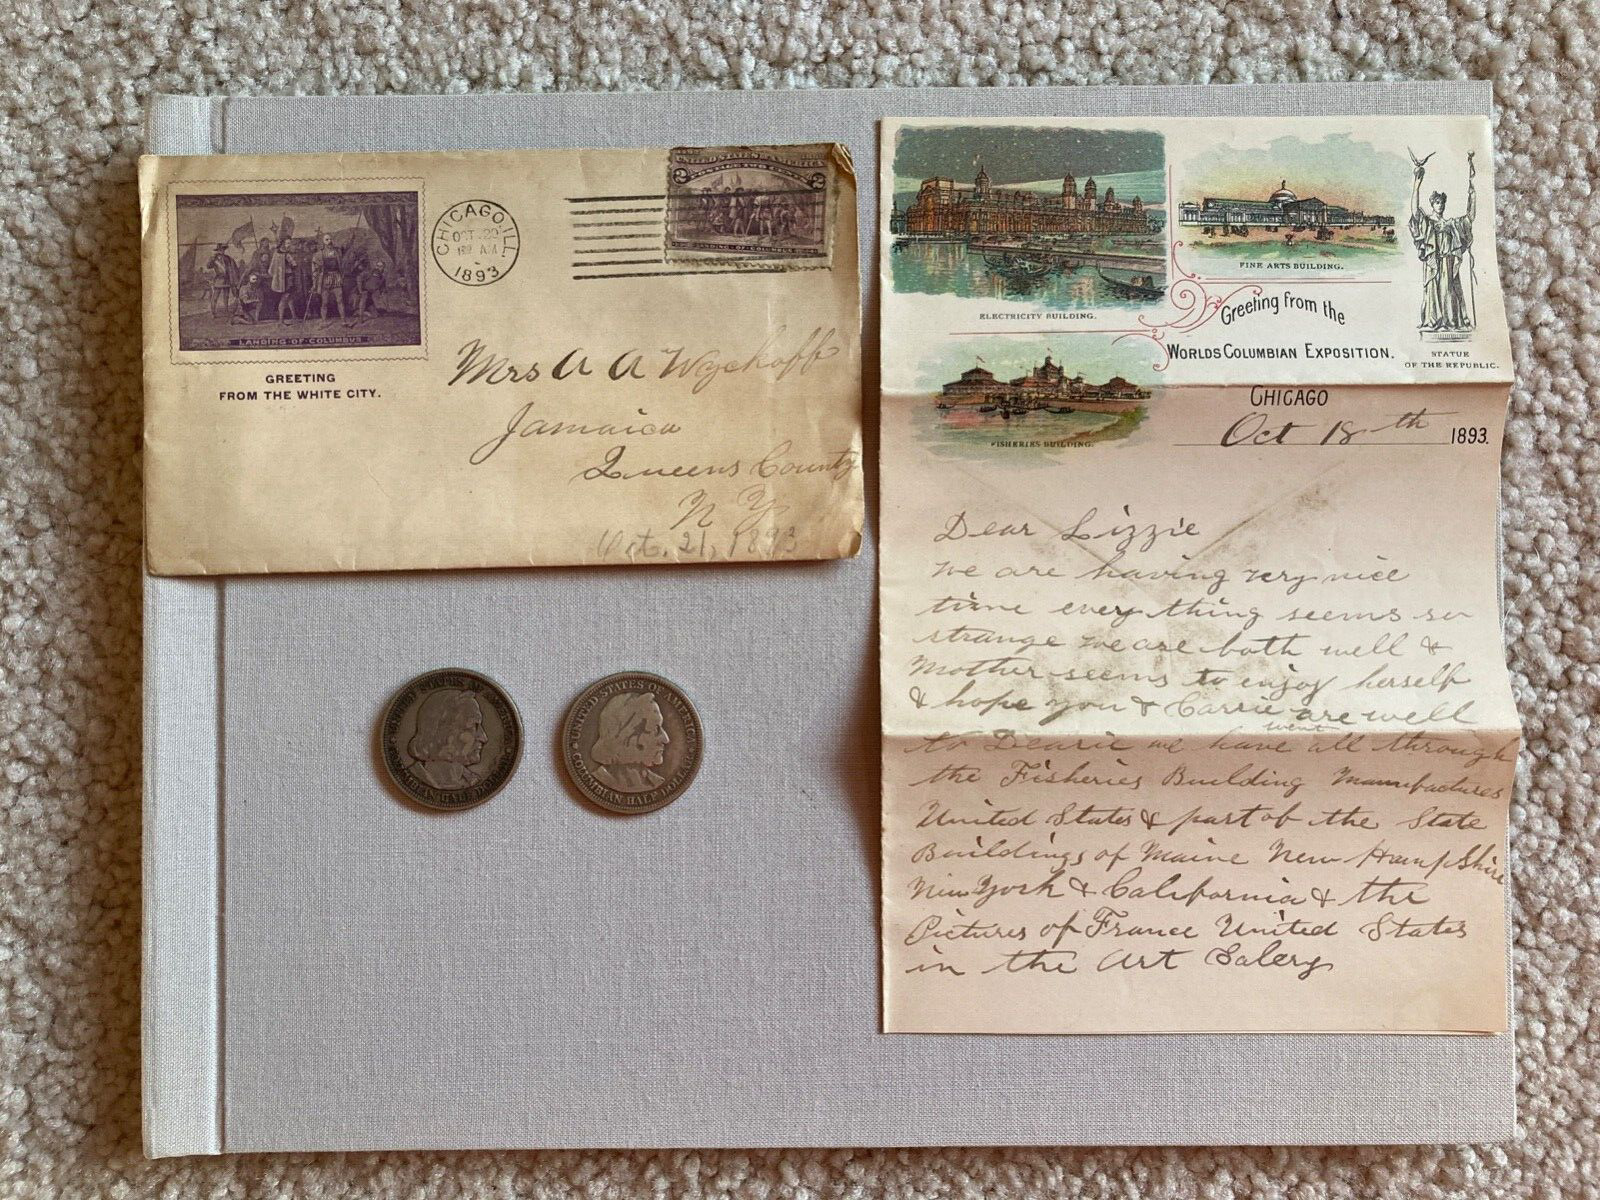 LANDING OF COLUMBUS
GREETING
FROM THE WHITE CITY.
CHICAGO, ILL.
OCT 20
1893
UNITED STATES OF AMERICA
2 2
LANDING OF COLUMBUS
Mrs A A Wyckoff
Jamaica
Queens County
N Y
Oct. 21, 1893
UNITED STATES OF AMERICA
COLUMBIAN HALF DOLLAR
UNITED STATES OF AMERICA
COLUMBIAN HALF DOLLAR
ELECTRICITY BUILDING.
FINE ARTS BUILDING.
Greeting from the
WORLDS COLUMBIAN EXPOSITION.
STATUE
OF THE REPUBLIC.
FISHERIES BUILDING.
CHICAGO
Oct 18th 1893.
Dear Lizzie
we are having very nice
time every thing seems so
strange we are both well &
Mother seems to enjoy herself
& hope you & Carrie are well
went
to Dearie we have all through
the Fisheries Building Manufactures
United States & part of the State
Buildings of Maine New Hampshire
New York & California & the
Pictures of France United States
in the Art Galery